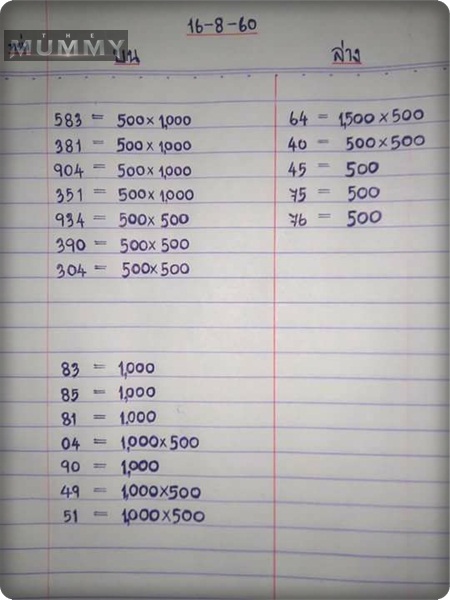 16-8-60
THE
MUMMY
บน
ล่าง
583 = 500 × 1,000
381 = 500 × 1,000
904 = 500 × 1,000
351 = 500 × 1,000
934 = 500 × 500
390 = 500 × 500
304 = 500 × 500
83 = 1,000
85 = 1,000
81 = 1.000
04 = 1,000 × 500
90 = 1,000
49 = 1,000 × 500
51 = 1,000 × 500
64 = 1,500 × 500
40 = 500 × 500
45 = 500
75 = 500
76 = 500